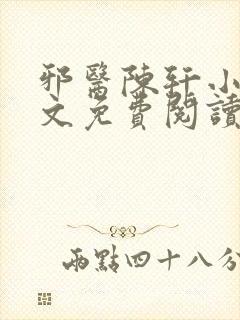 邪醫陳軒小
文免費閱讀
兩點四十八分